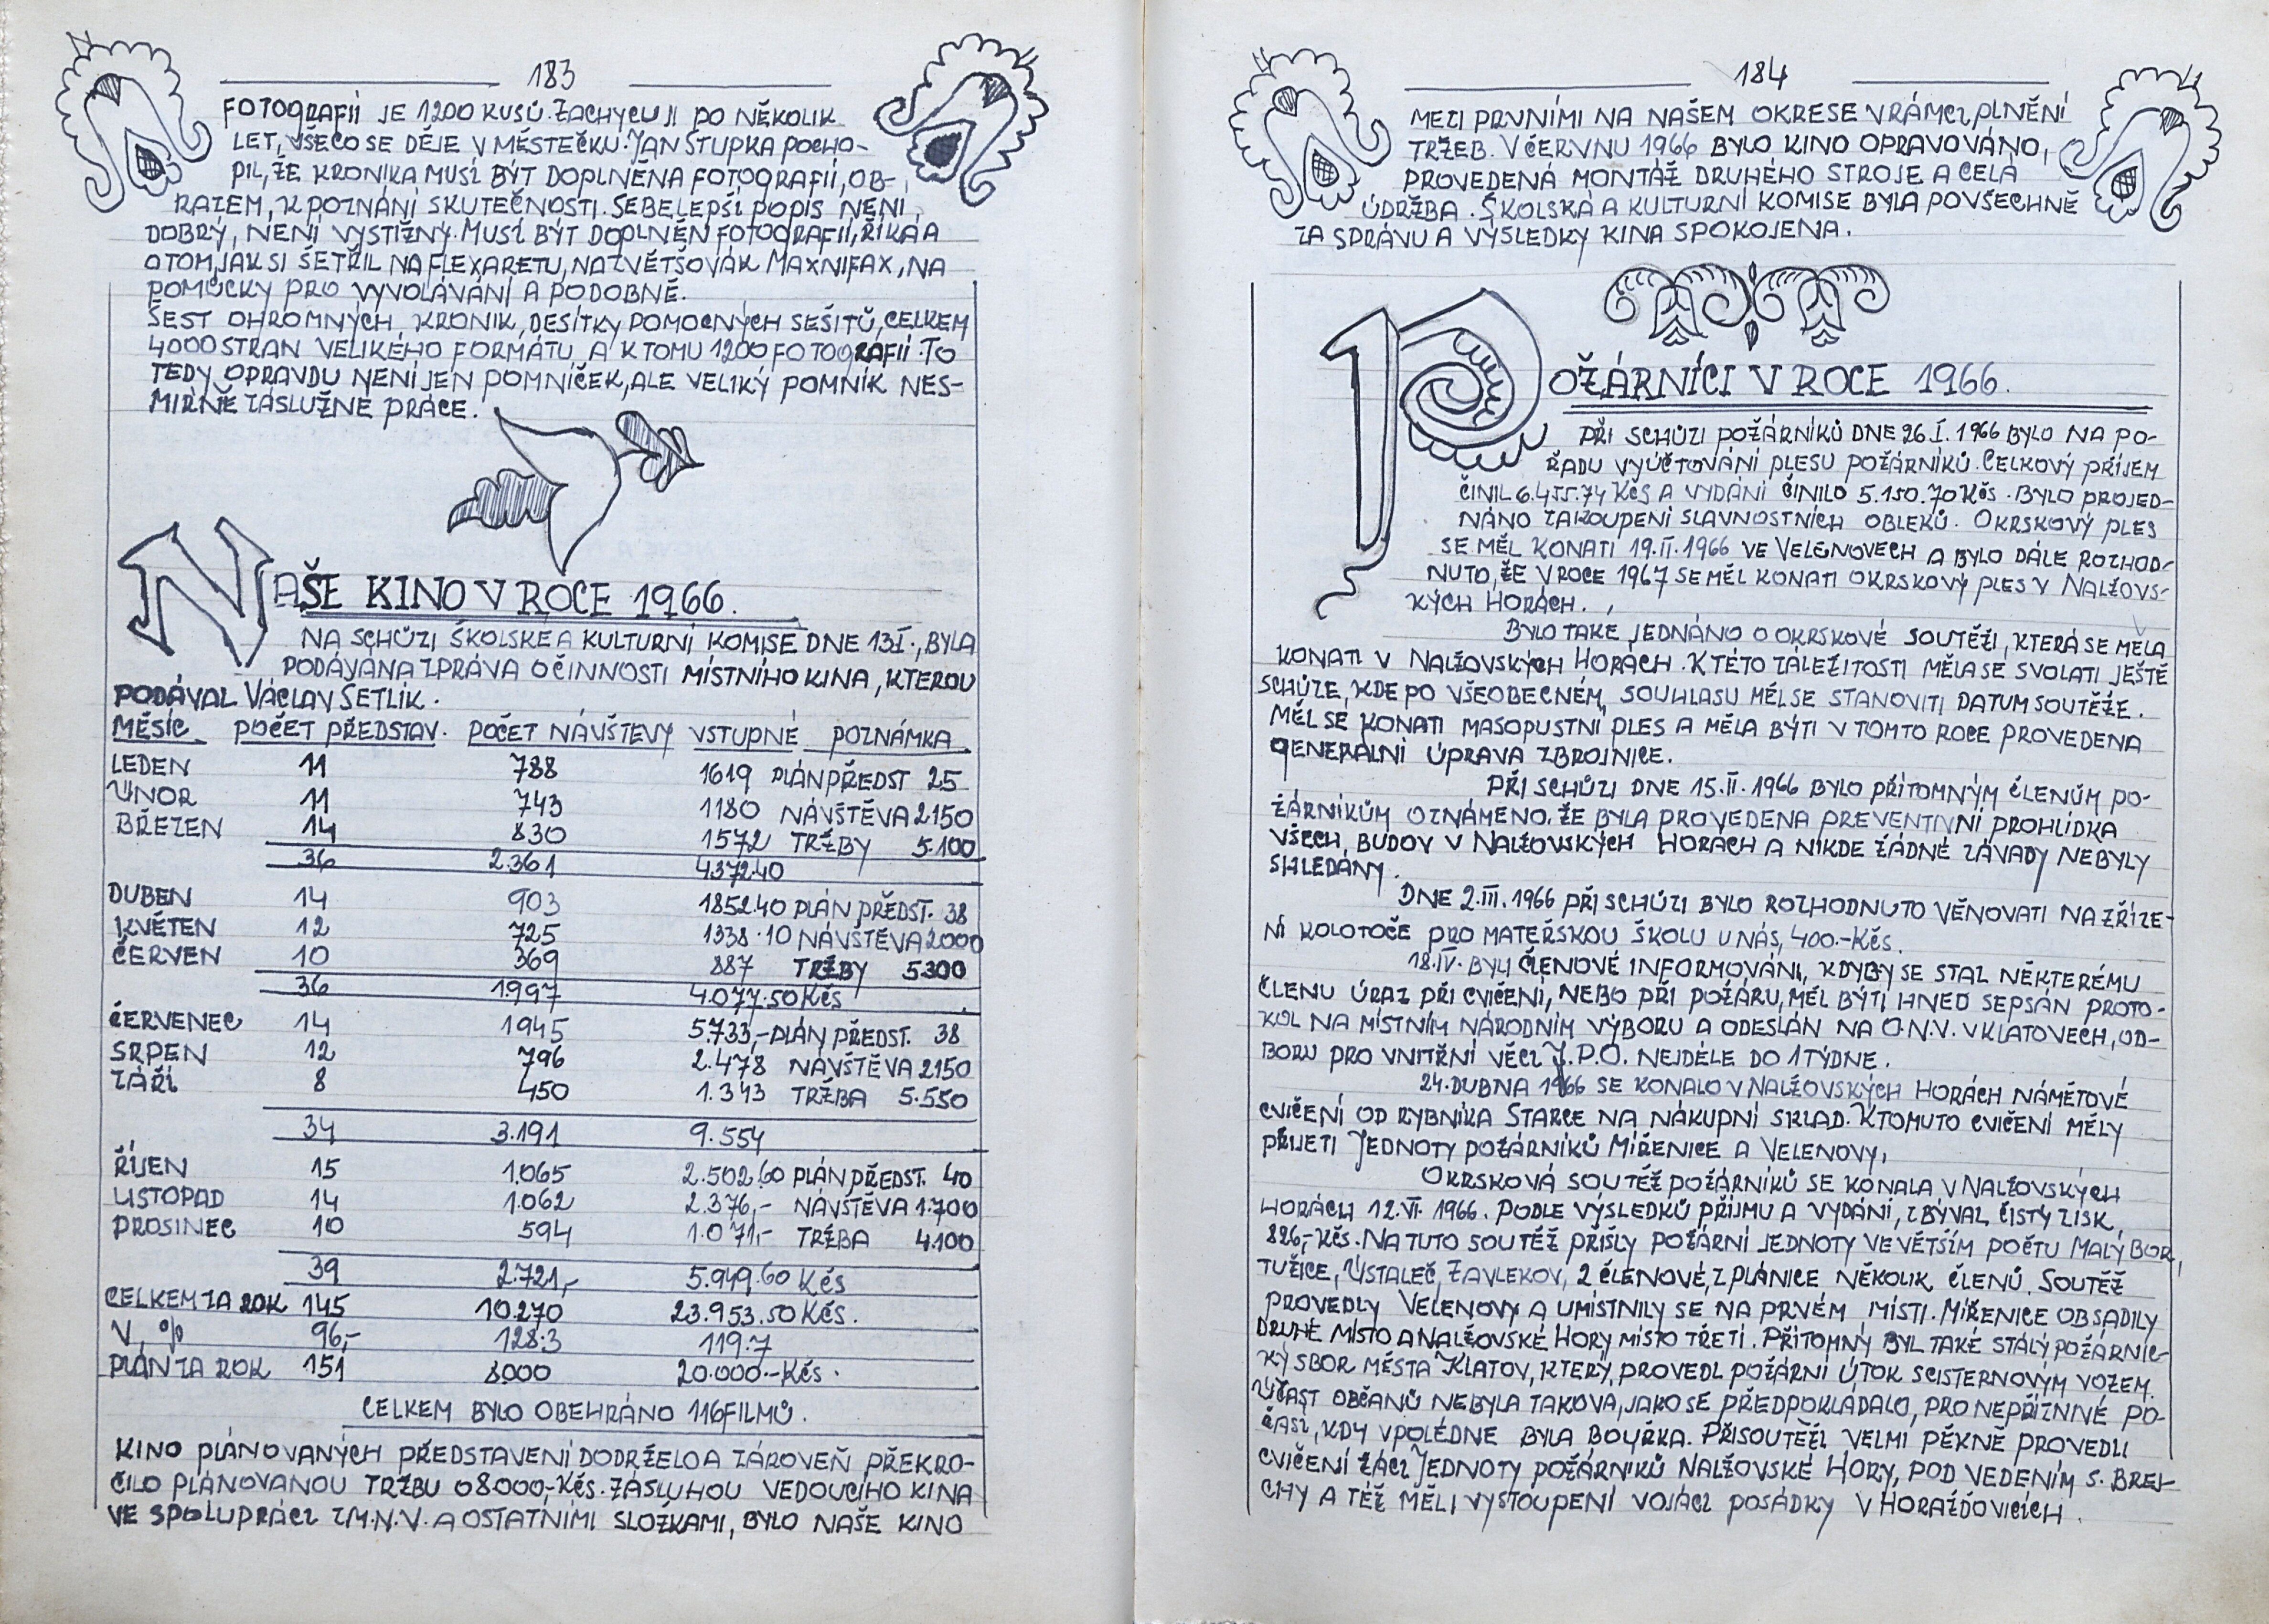 183
FOTOGRAFIÍ JE 1200 KUSŮ. ZACHYCUJI PO NĚKOLIK
LET, VŠE CO SE DĚJE V MĚSTEČKU. JAN STUPKA POCHO-
PIL, ŽE KRONIKA MUSÍ BÝT DOPLNĚNA FOTOGRAFIÍ, OB-
RAZEM, K POZNÁNÍ SKUTEČNOSTI. SEBELEPŠÍ POPIS NENÍ
DOBRÝ, NENÍ VYSTIŽNÝ. MUSÍ BÝT DOPLNĚN FOTOGRAFIÍ, ŘÍKÁ A
O TOM, JAK SI ŠETŘIL NA FLEXARETU, NA ZVĚTŠOVÁK MAXNIFAX, NA
POMŮCKY PRO VYVOLÁVÁNÍ A PODOBNĚ.
ŠEST OHROMNÝCH KRONIK, DESÍTKY POMOCNÝCH SEŠITŮ, CELKEM
4000 STRAN VELIKÉHO FORMÁTU A K TOMU 1200 FOTOGRAFIÍ. TO
TEDY OPRAVDU NENÍ JEN POMNÍČEK, ALE VELIKÝ POMNÍK NES-
MÍRNĚ ZÁSLUŽNÉ PRÁCE.
NAŠE KINO V ROCE 1966.
NA SCHŮZI ŠKOLSKÉ A KULTURNÍ KOMISE DNE 13.I., BYLA
PODÁVÁNA ZPRÁVA O ČINNOSTI MÍSTNÍHO KINA, KTEROU
PODÁVAL VÁCLAV SETLÍK.
MĚSÍC POČET PŘEDSTAV. POČET NÁVŠTĚVY VSTUPNÉ POZNÁMKA
LEDEN 11 788 1619 PLÁN PŘEDST 25
ÚNOR 11 743 1180 NÁVŠTĚVA 2150
BŘEZEN 14 830 1572 TRŽBY 5.100
36 2.361 4372.40
DUBEN 14 903 1852.40 PLÁN PŘEDST. 38
KVĚTEN 12 725 1338.10 NÁVŠTĚVA 2000
ČERVEN 10 369 887 TRŽBY 5300
36 1997 4.077.50 Kčs
ČERVENEC 14 1945 5.733,- PLÁN PŘEDST. 38
SRPEN 12 796 2.478 NÁVŠTĚVA 2150
ZÁŘÍ 8 450 1.343 TRŽBA 5.550
34 3.191 9.554
ŘÍJEN 15 1.065 2.502.60 PLÁN PŘEDST. 40
LISTOPAD 14 1.062 2.376,- NÁVŠTĚVA 1.700
PROSINEC 10 594 1.071,- TRŽBA 4.100
39 2.721,- 5.949.60 Kčs
CELKEM ZA ROK 145 10.270 23.953.50 Kčs.
V % 96,- 128.3 119.7
PLÁN ZA ROK 151 8000 20.000.-Kčs.
CELKEM BYLO OBEHRÁNO 116 FILMŮ.
KINO PLÁNOVANÝCH PŘEDSTAVENÍ DODRŽELO A ZÁROVEŇ PŘEKRO-
ČILO PLÁNOVANOU TRŽBU O 8.000,-Kčs. ZÁSLUHOU VEDOUCÍHO KINA
VE SPOLUPRÁCI Z M.N.V. A OSTATNÍMI SLOŽKAMI, BYLO NAŠE KINO
184
MEZI PRVNÍMI NA NAŠEM OKRESE V RÁMCI PLNĚNÍ
TRŽEB. V ČERVNU 1966 BYLO KINO OPRAVOVÁNO,
PROVEDENÁ MONTÁŽ DRUHÉHO STROJE A CELÁ
ÚDRŽBA. ŠKOLSKÁ A KULTURNÍ KOMISE BYLA POVŠECHNĚ
ZA SPRÁVU A VÝSLEDKY KINA SPOKOJENA.
POŽÁRNÍCI V ROCE 1966.
PŘI SCHŮZI POŽÁRNÍKŮ DNE 26.I. 1966 BYLO NA PO-
ŘADU VYÚČTOVÁNÍ PLESU POŽÁRNÍKŮ. CELKOVÝ PŘÍJEM
ČINIL 6.455.74 Kčs A VYDÁNÍ ČINILO 5.150.70 Kčs. BYLO PROJED-
NÁNO ZAKOUPENÍ SLAVNOSTNÍCH OBLEKŮ. OKRSKOVÝ PLES
SE MĚL KONATI 19.II. 1966 VE VELENOVECH A BYLO DÁLE ROZHOD-
NUTO, ŽE V ROCE 1967 SE MĚL KONATI OKRSKOVÝ PLES V NALŽOVS-
KÝCH HORÁCH.
BYLO TAKÉ JEDNÁNO O OKRSKOVÉ SOUTĚŽI, KTERÁ SE MĚLA
KONATI V NALŽOVSKÝCH HORÁCH. K TÉTO ZÁLEŽITOSTI MĚLA SE SVOLATI JEŠTĚ
SCHŮZE, KDE PO VŠEOBECNÉM SOUHLASU MĚL SE STANOVITI DATUM SOUTĚŽE.
MĚL SE KONATI MASOPUSTNÍ PLES A MĚLA BÝTI V TOMTO ROCE PROVEDENA
GENERÁLNÍ ÚPRAVA ZBROJNICE.
PŘI SCHŮZI DNE 15.II. 1966 BYLO PŘÍTOMNÝM ČLENŮM PO-
ŽÁRNÍKŮM OZNÁMENO, ŽE BYLA PROVEDENA PREVENTIVNÍ PROHLÍDKA
VŠECH BUDOV V NALŽOVSKÝCH HORÁCH A NIKDE ŽÁDNÉ ZÁVADY NEBYLY
SHLEDÁNY.
DNE 2.III. 1966 PŘI SCHŮZI BYLO ROZHODNUTO VĚNOVATI NA ZŘÍZE-
NÍ KOLOTOČE PRO MATEŘSKOU ŠKOLU U NÁS, 400.-Kčs.
18.IV. BYLI ČLENOVÉ INFORMOVÁNI, KDYBY SE STAL NĚKTERÉMU
ČLENU ÚRAZ PŘI CVIČENÍ, NEBO PŘI POŽÁRU, MĚL BÝTI HNED SEPSÁN PROTO-
KOL NA MÍSTNÍM NÁRODNÍM VÝBORU A ODESLÁN NA O.N.V. V KLATOVECH, OD-
BORU PRO VNITŘNÍ VĚCI J.P.O. NEJDÉLE DO 1 TÝDNE.
24. DUBNA 1966 SE KONALO V NALŽOVSKÝCH HORÁCH NÁMĚTOVÉ
CVIČENÍ OD RYBNÍKA STARCE NA NÁKUPNÍ SKLAD. K TOMUTO CVIČENÍ MĚLY
PŘIJETI JEDNOTY POŽÁRNÍKŮ MIŘENICE A VELENOVY,
OKRSKOVÁ SOUTĚŽ POŽÁRNÍKŮ SE KONALA V NALŽOVSKÝCH
HORÁCH 12.VI. 1966. PODLE VÝSLEDKŮ PŘÍJMU A VYDÁNÍ, ZBÝVAL ČISTÝ ZISK
826,-Kčs. NA TUTO SOUTĚŽ PŘIŠLY POŽÁRNÍ JEDNOTY VE VĚTŠÍM POČTU MALÝ BOR,
TUŽICE, ÚSTALEČ, ZAVLEKOV, 2 ČLENOVÉ, Z PLÁNICE NĚKOLIK ČLENŮ. SOUTĚŽ
PROVEDLY VELENOVY A UMÍSTNILY SE NA PRVÉM MÍSTĚ. MIŘENICE OBSADILY
DRUHÉ MÍSTO A NALŽOVSKÉ HORY MÍSTO TŘETÍ. PŘÍTOMNÝ BYL TAKÉ STÁLÝ POŽÁRNIC-
KÝ SBOR MĚSTA KLATOV, KTERÝ PROVEDL POŽÁRNÍ ÚTOK S CISTERNOVÝM VOZEM.
ÚČAST OBČANŮ NEBYLA TAKOVÁ, JAKO SE PŘEDPOKLÁDALO, PRO NEPŘÍZNIVÉ PO-
ČASÍ, KDY V POLEDNE BYLA BOUŘKA. PŘI SOUTĚŽI VELMI PĚKNĚ PROVEDLI
CVIČENÍ ŽÁCI JEDNOTY POŽÁRNÍKŮ NALŽOVSKÉ HORY, POD VEDENÍM S. BREJ-
CHY A TÉŽ MĚLI VYSTOUPENÍ VOJÁCI POSÁDKY V HORAŽĎOVICÍCH.